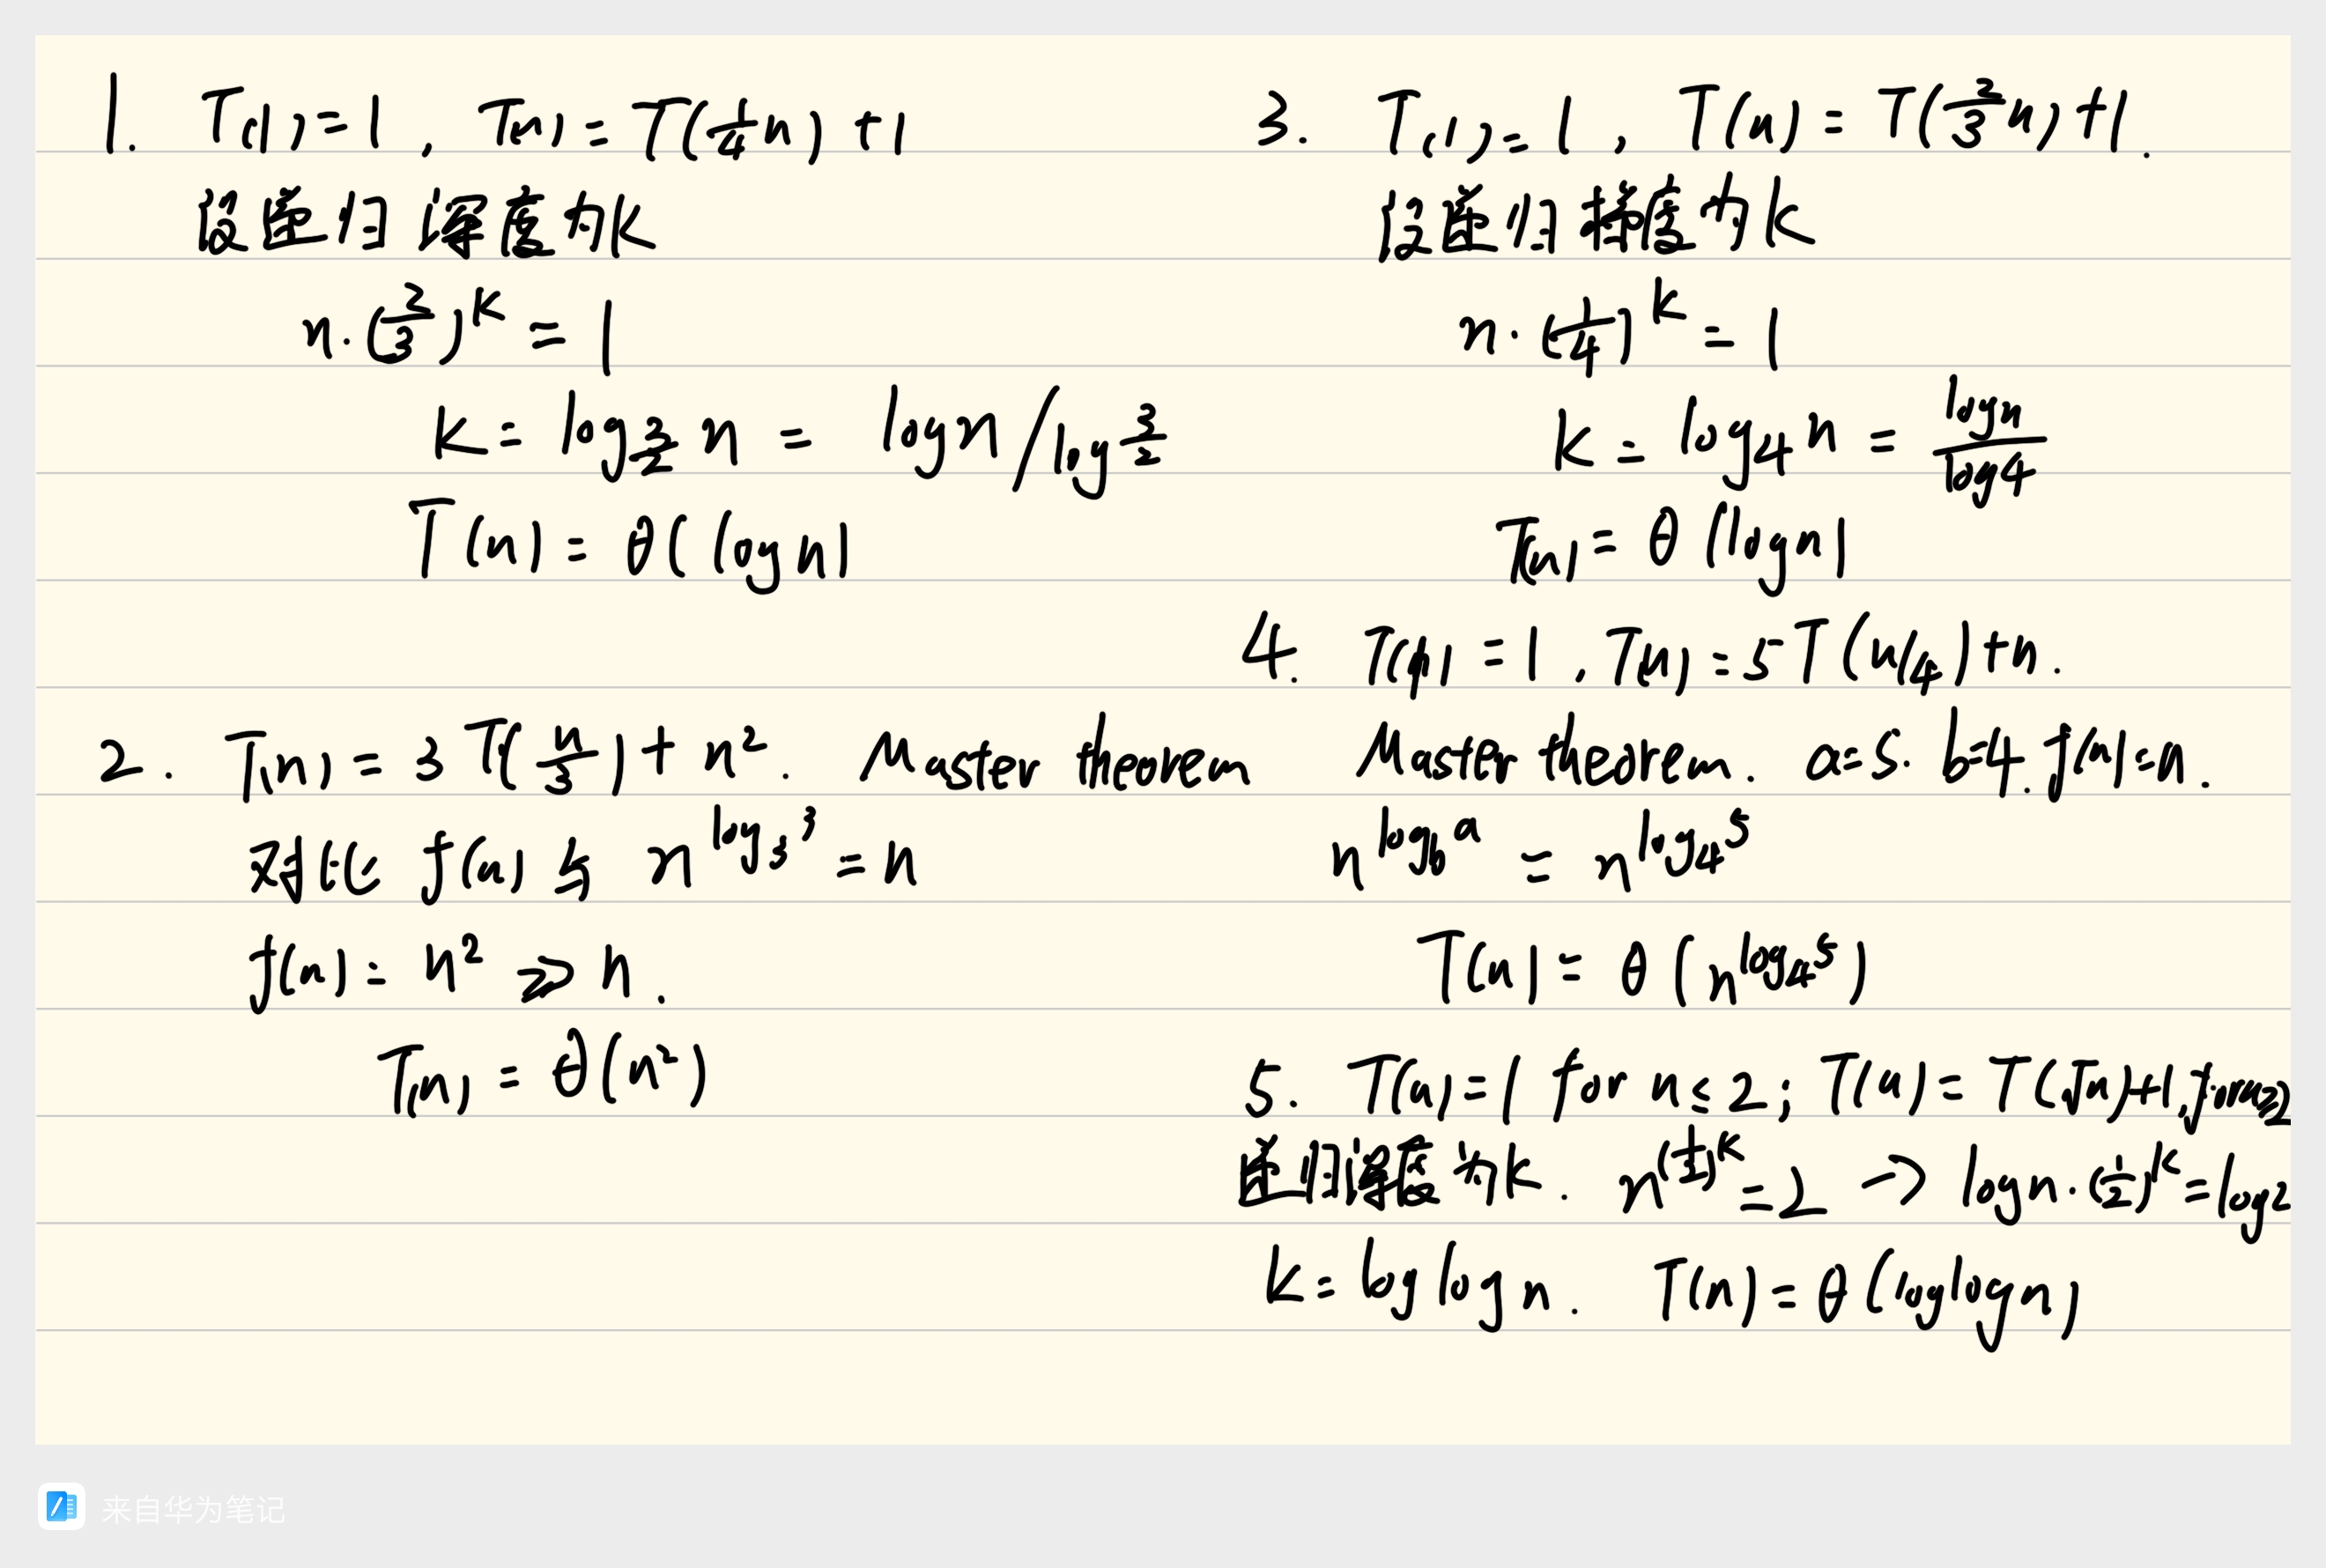 1. T(1)=1, T(n)=T(1/4 n)+1
设递归深度为k
n·(2/3)^k=1
k=log_{3/2} n=logn/log 3/2
T(n)=θ(logn)
2. T(n)=3T(n/3)+n². Master theorem
对比 f(n)与 n^{log_3 3}=n
f(n)=n²≫n.
T(n)=θ(n²)
3. T(1)=1, T(n)=T(2/3 n)+1.
设递归深度为k
n·(1/4)^k=1
k=log_4 n=logn/log4
T(n)=θ(logn)
4. T(1)=1, T(n)=5T(n/4)+n.
Master theorem. a=5. b=4. f(n)=n.
n^{log_b a}=n^{log_4 5}
T(n)=θ(n^{log_4 5})
5. T(n)=1 for n≤2; T(n)=T(√n)+1, for n≥2
递归深度为k. n^{(1/2)^k}=2 → logn·(1/2)^k=log2
k=loglogn. T(n)=θ(loglogn)
来自华为笔记